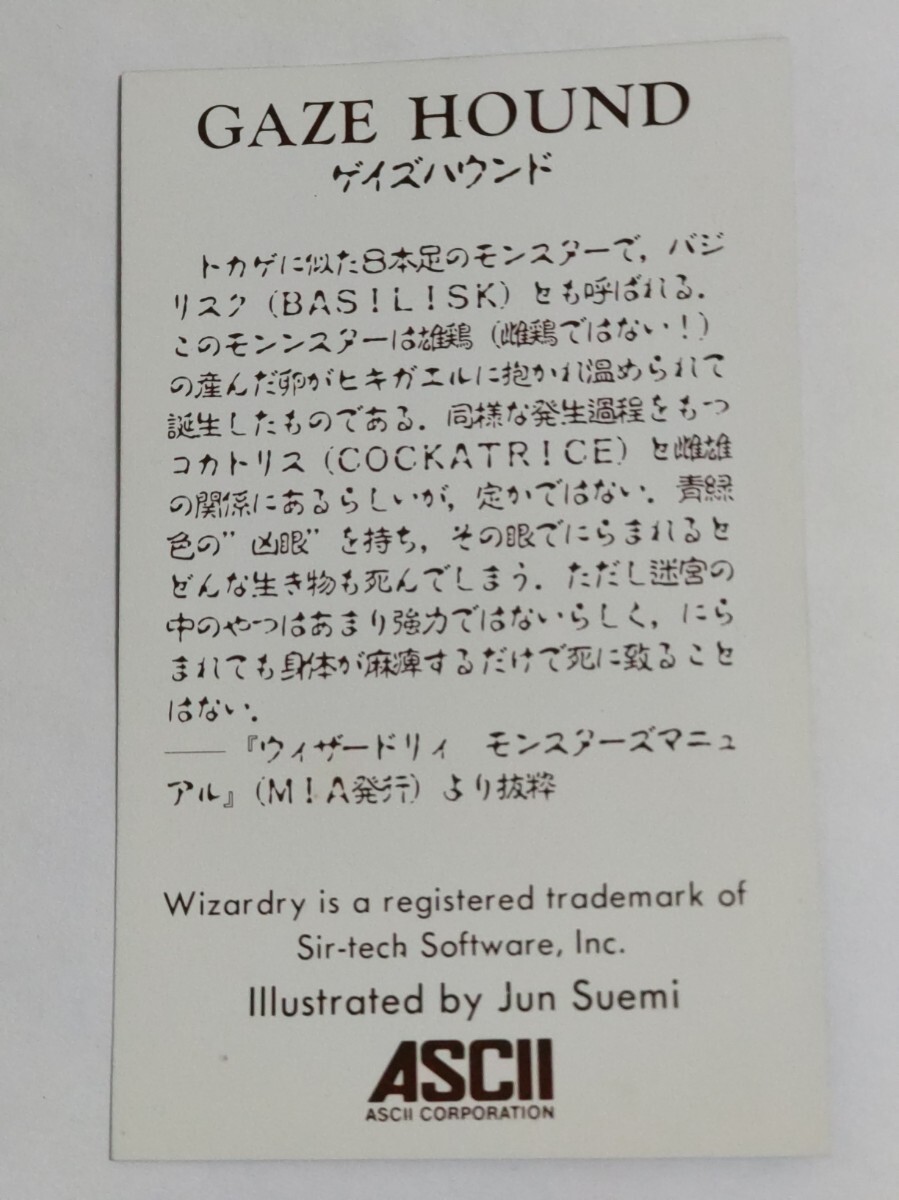 GAZE HOUND
ゲイズハウンド
トカゲに似た8本足のモンスターで，バジ
リスク（BAS!L!SK）とも呼ばれる．
このモンンスターは雄鶏（雌鶏ではない！）
の産んだ卵がヒキガエルに抱かれ温められて
誕生したものである．同様な発生過程をもつ
コカトリス（COCKATR!CE）と雌雄
の関係にあるらしいが，定かではない．青緑
色の”凶眼”を持ち，その眼でにらまれると
どんな生き物も死んでしまう．ただし迷宮の
中のやつはあまり強力ではないらしく，にら
まれても身体が麻痺するだけで死に致ること
はない．
――『ウィザードリィ　モンスターズマニュ
アル』（M!A発行）より抜粋
Wizardry is a registered trademark of
Sir-tech Software, Inc.
Illustrated by Jun Suemi
ASCII
ASCII CORPORATION